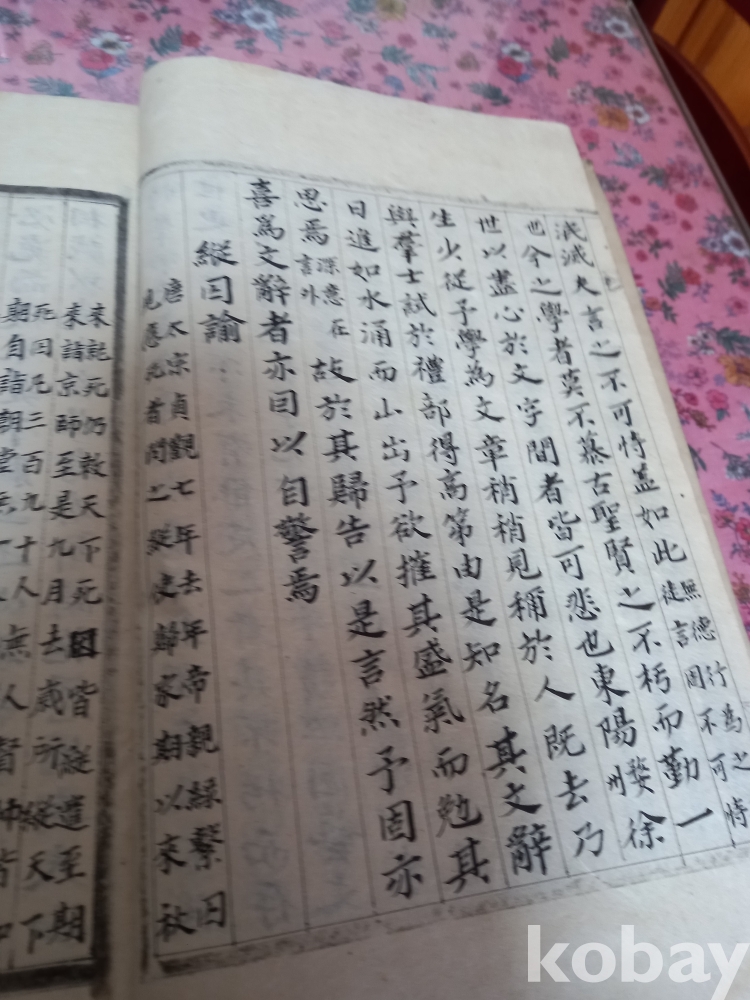 泯滅夫言之不可恃盖如此
無德行為之
徒言固不可恃
也今之學者莫不慕古聖賢之不朽而勤一
世以盡心於文字間者皆可悲也東陽婺州徐
生少從予學為文章稍稍見稱於人既去乃
與羣士試於禮部得高第由是知名其文辭
日進如水涌而山出予欲摧其盛氣而勉其
思焉深意在言外故於其歸告以是言然予固亦
喜為文辭者亦因以自警焉
縱囚論
唐太宗貞觀七年去年帝親綠繫囚
見應死者閔之縱使歸家期以來秋
來就死仍敕天下死囚皆縱遣至期
來詣京師至是九月去歲所縱天下
死囚凡三百九十人無人督帥皆
期自詣朝堂無一人
kobay